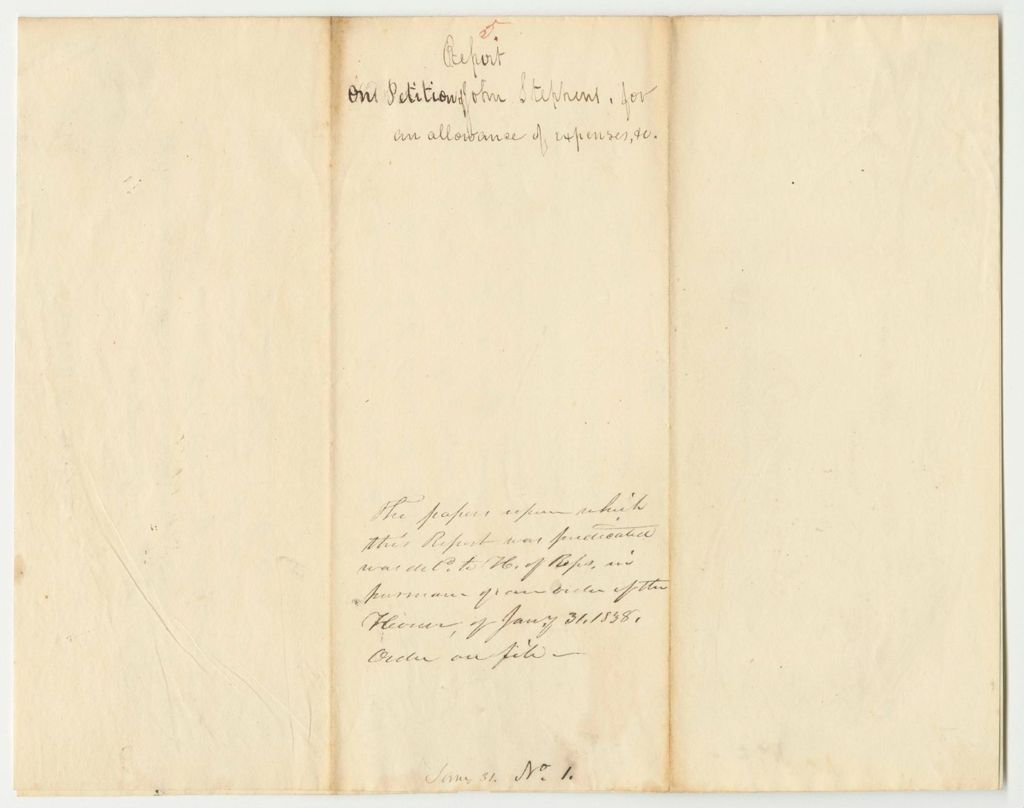 5.
Report
On Petition of John Stephens, for
an allowance of expenses, &c.
The papers upon which
this Report was predicated
was del'd. to H. of Reps. in
pursuance of an order of the
House, of Jany 31, 1838.
Order on file —
Jany 31. No. 1.